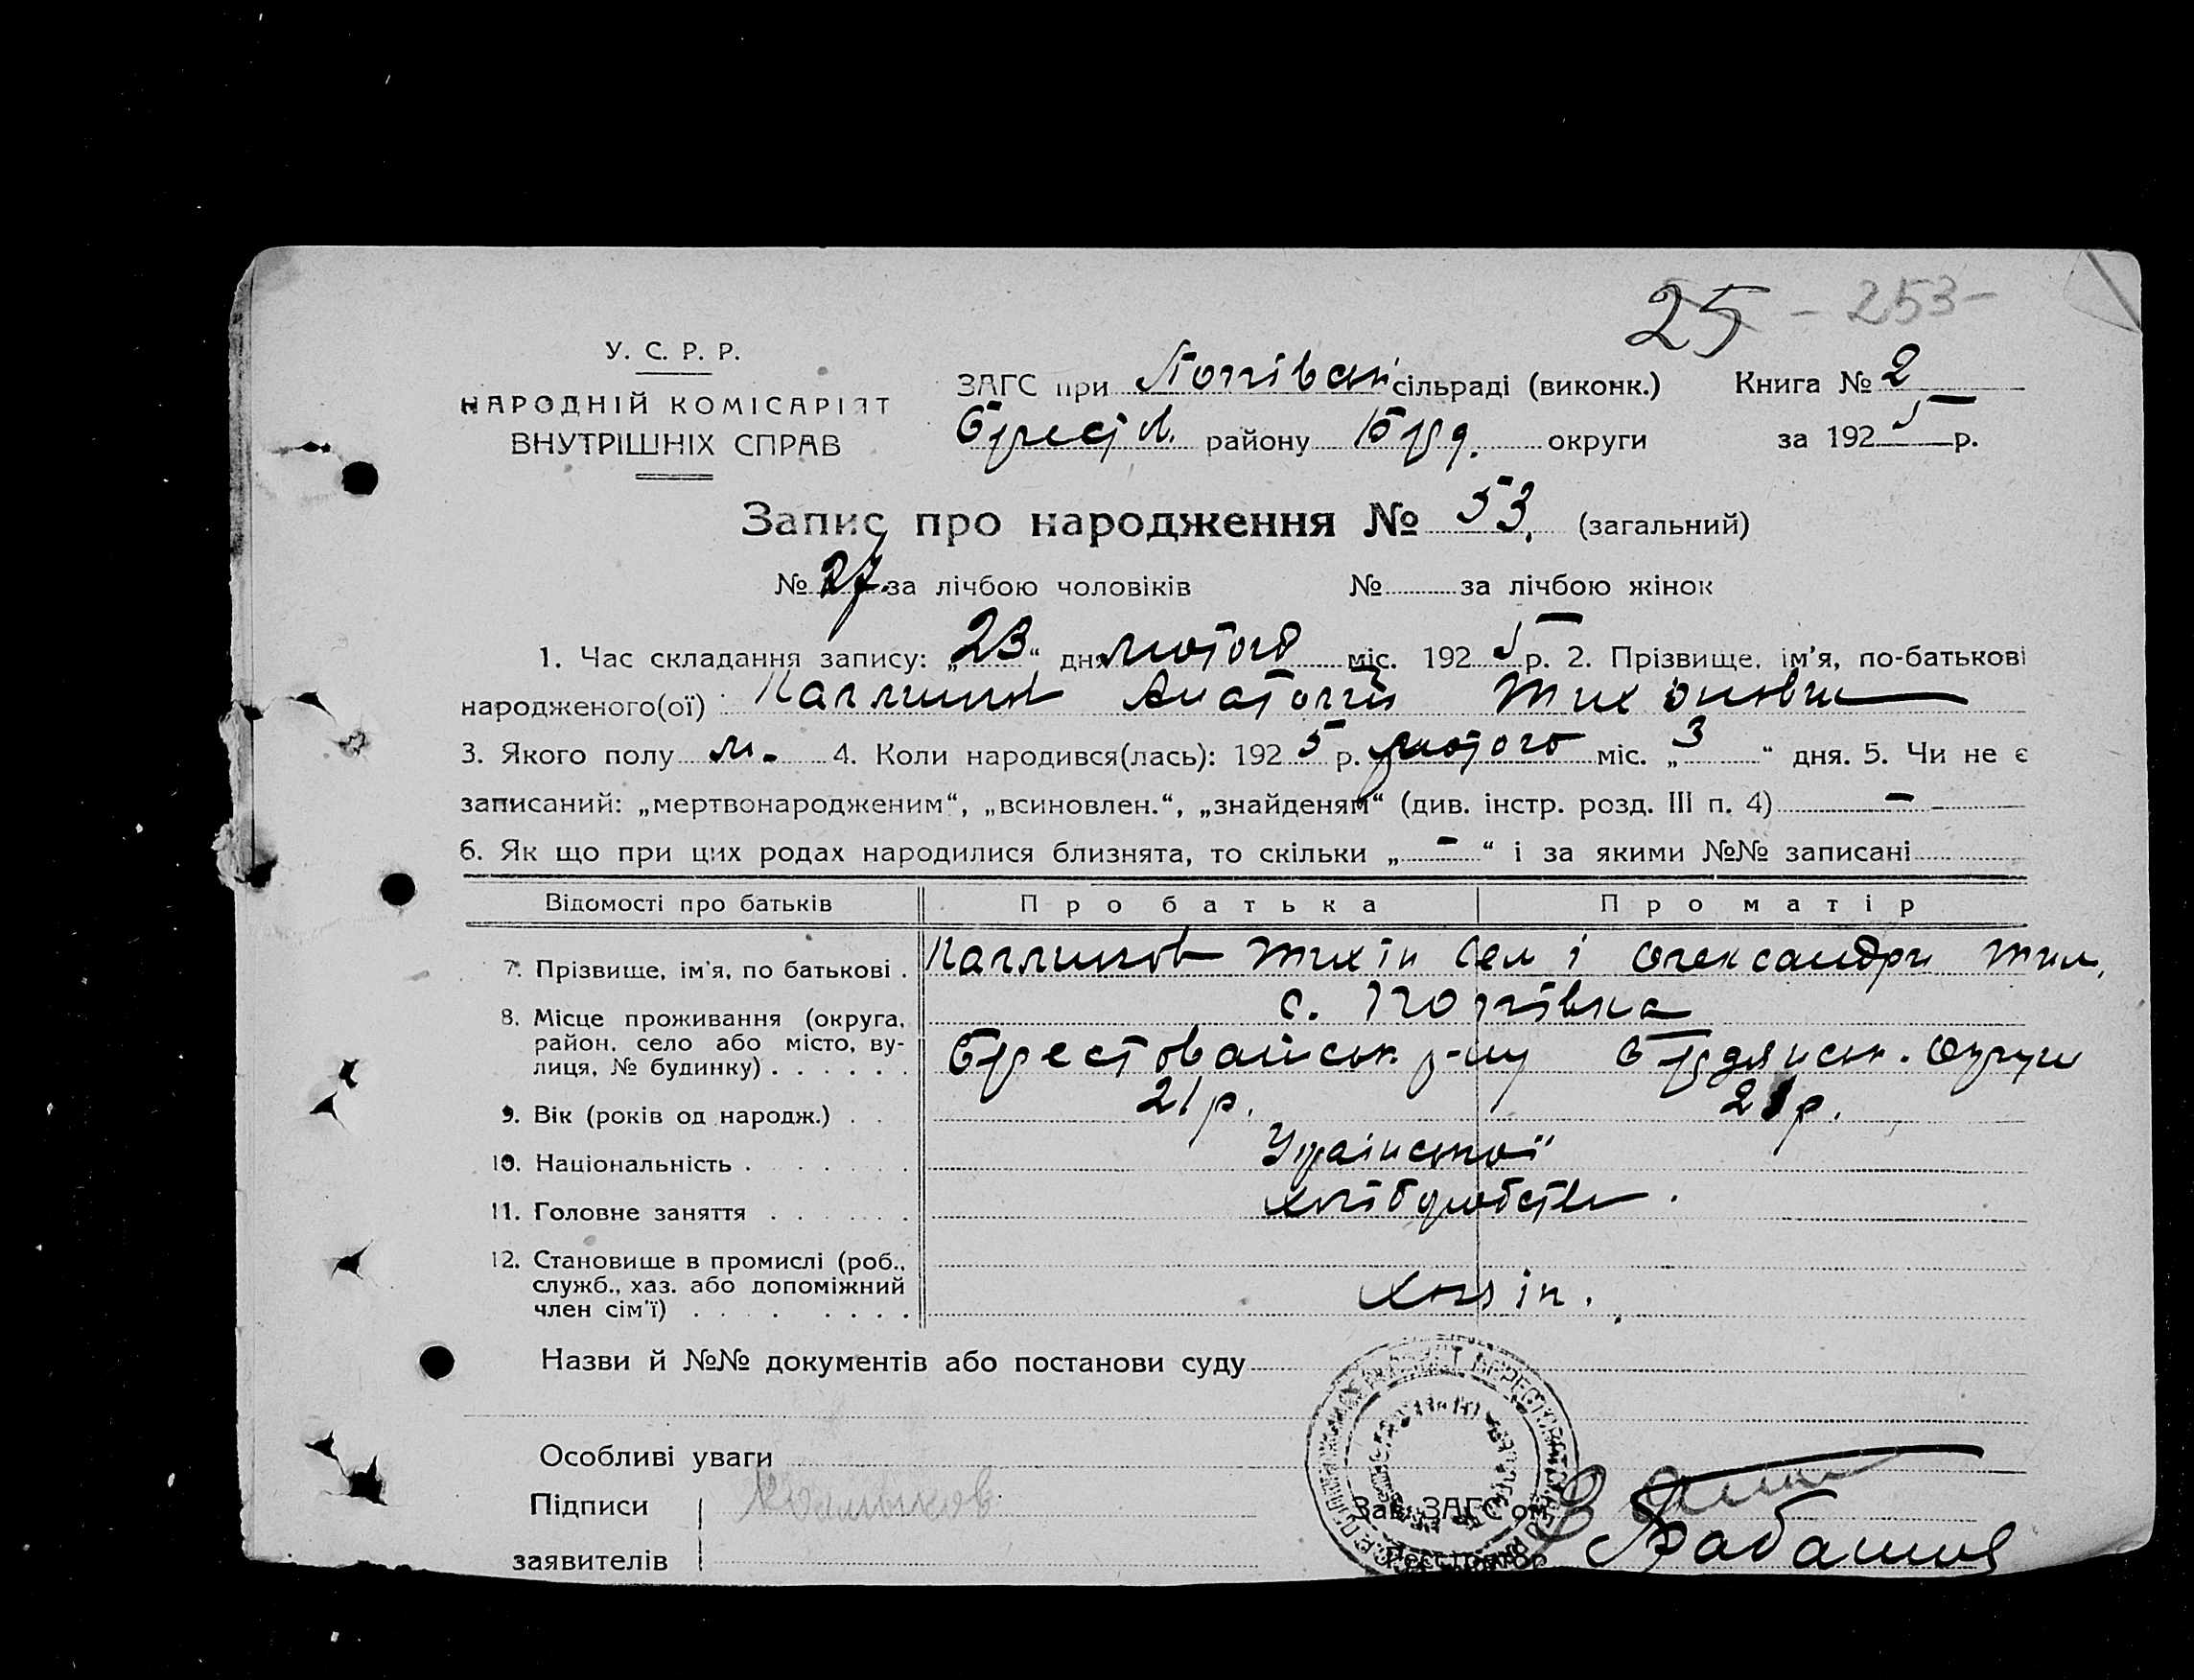 25 - 253-
У. С. Р. Р.
НАРОДНІЙ КОМІСАРІЯТ
ВНУТРІШНІХ СПРАВ
ЗАГС при сільраді (виконк.) Книга № 2
Берест. району Берд. округи за 1925 р.
Запис про народження № 53. (загальний)
№ 27. за лічбою чоловіків № за лічбою жінок
1. Час складання запису: „23“ дня лютого міс. 1925 р. 2. Прізвище, ім'я, по-батькові
народженого(ої) Каллиников Анатолій Тихонович
3. Якого полу м. 4. Коли народився(лась): 1925 р. лютого міс. „3“ дня. 5. Чи не є
записаний: „мертвонародженим“, „всиновлен.“, „знайденям“ (див. інстр. розд. III п. 4) —
6. Як що при цих родах народилися близнята, то скільки „—“ і за якими №№ записані
Відомості про батьків Про батька Про матір
7. Прізвище, ім'я, по батькові . Тихін Сем і Олександри Тим.
8. Місце проживання (округа, район, село або місто, вулиця, № будинку) . . . . . .
с.
Берестовайськ р-ну Бердянськ. Округи
9. Вік (років од народж.) . . 21 р. 21 р.
10. Національність . . . . . . . Української
11. Головне заняття . . . . . . хліборобств
12. Становище в промислі (роб.,
служб., хаз. або допоміжний
член сім'ї) . . . . . . . .
Назви й №№ документів або постанови суду
Особливі уваги
Підписи
заявителів
Зав. ЗАГС'ом
Реєстратор